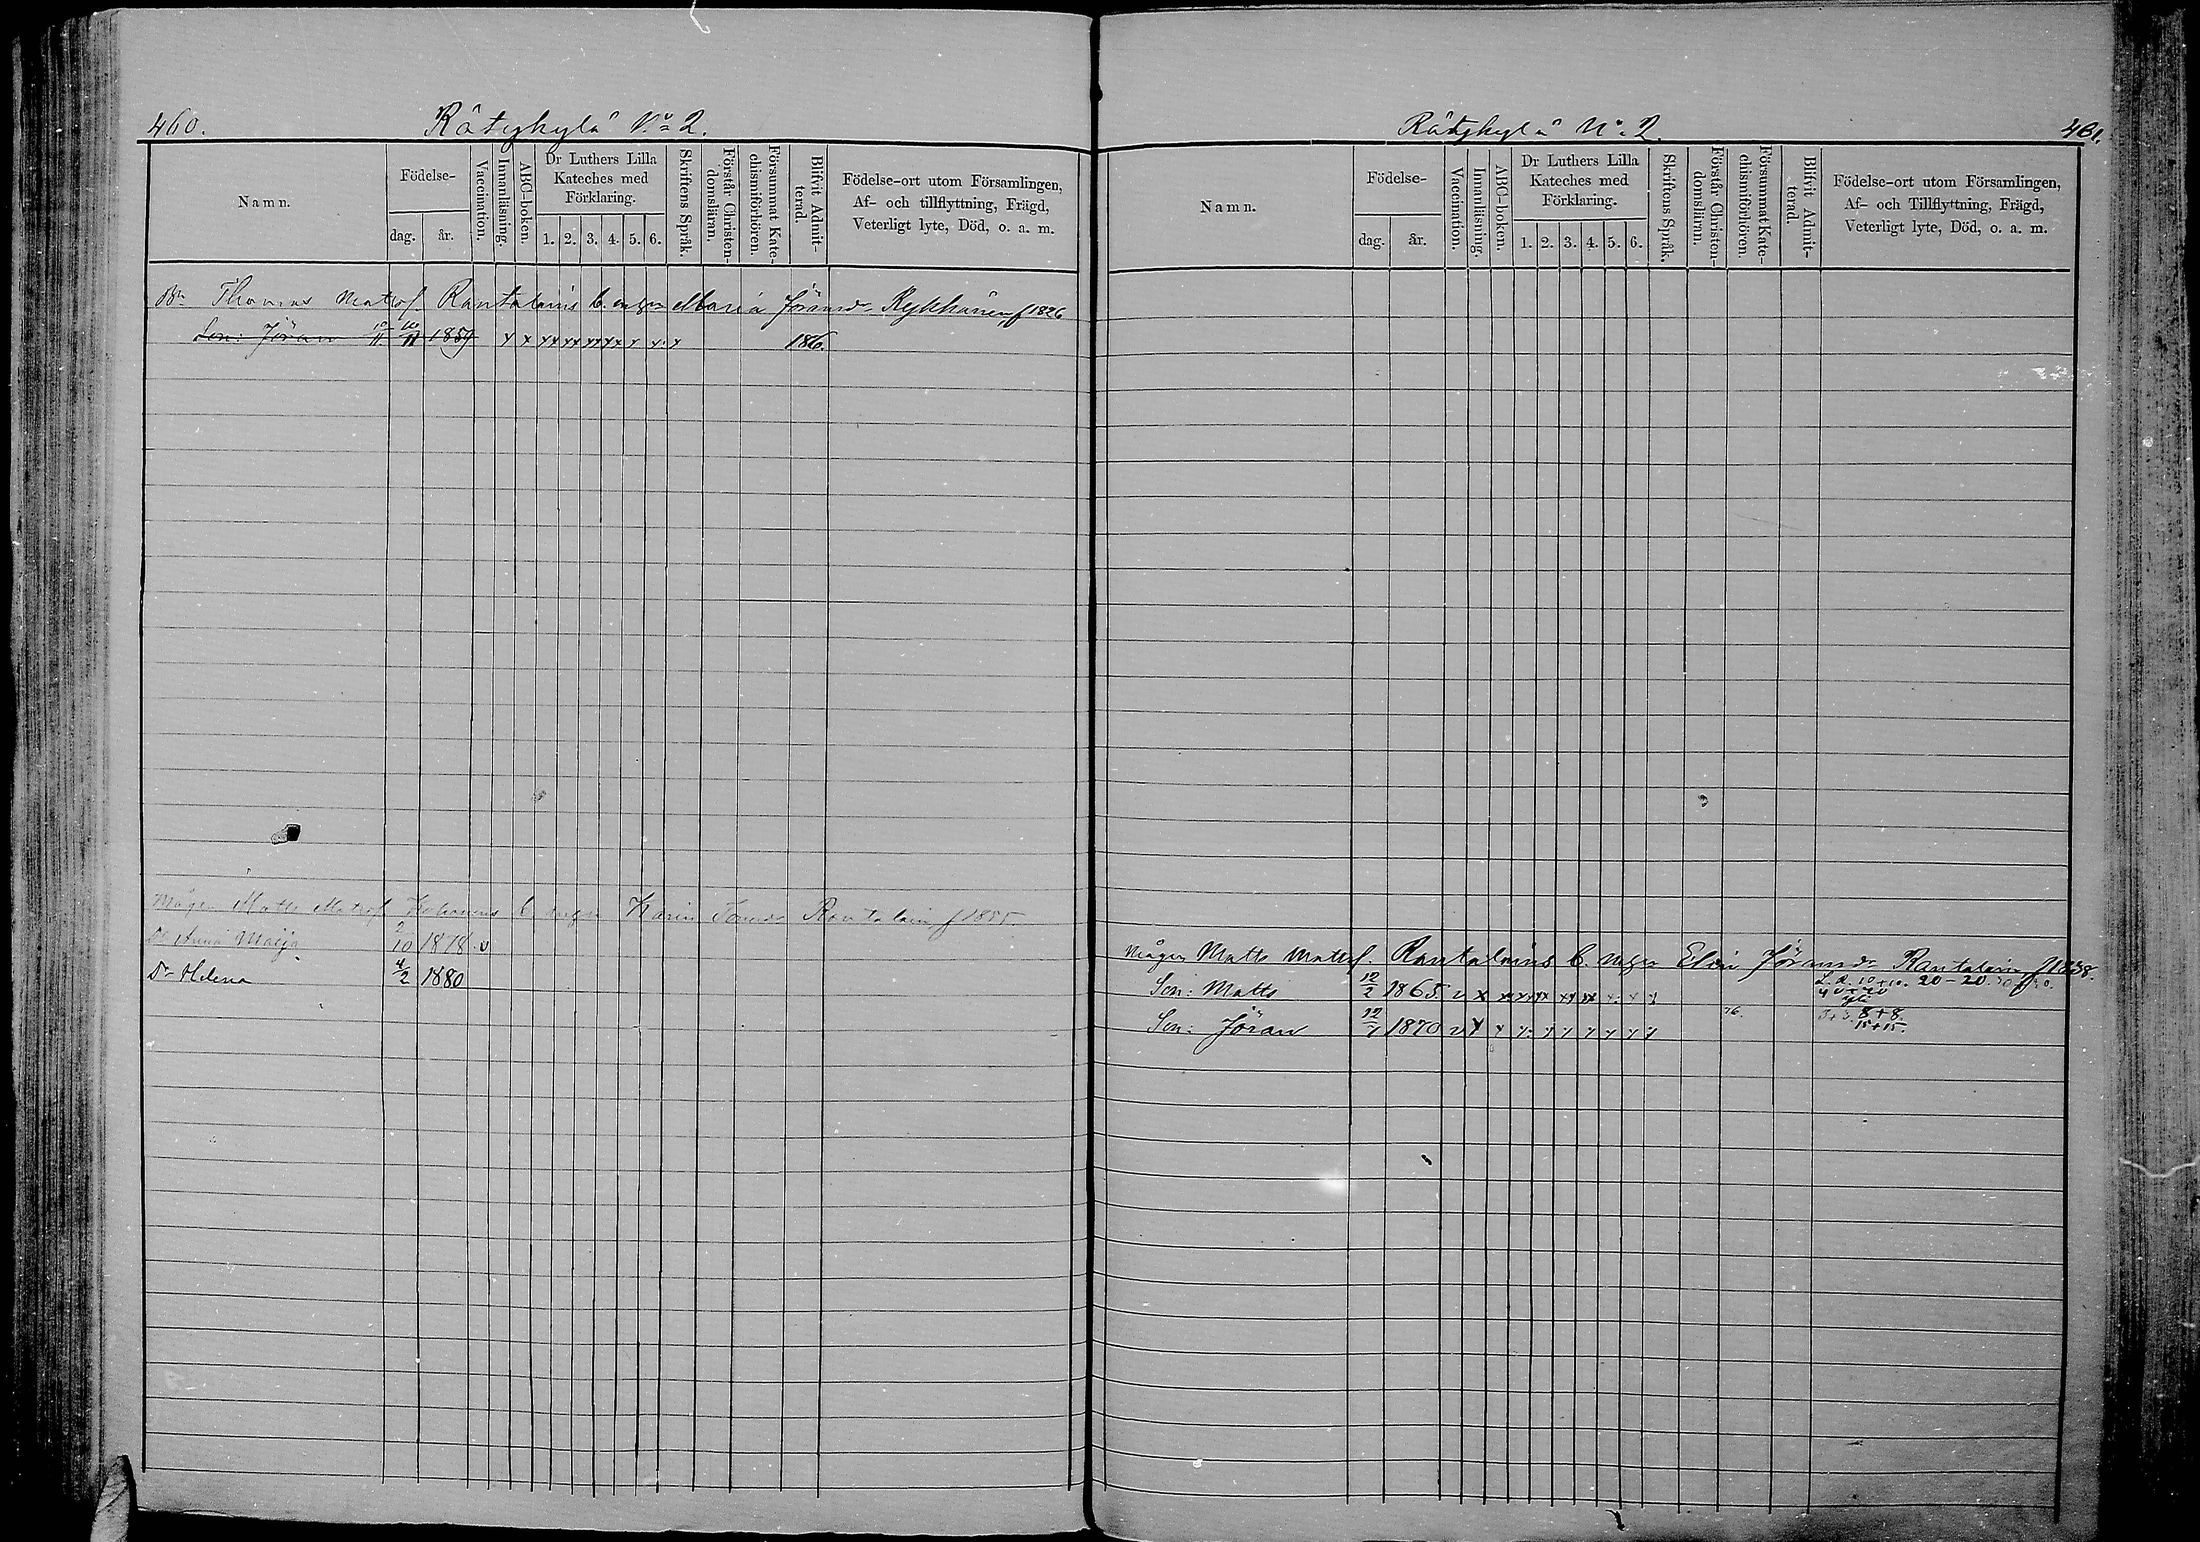 460.
Rätykylä No 2.
Namn.
Födelse-
dag.
år.
Vaccination.
Innanläsning.
ABC-boken.
Dr Luthers Lilla Kateches med Förklaring.
1. 2. 3. 4. 5. 6.
Skriftens Språk.
Förstår Christen-domsläran.
Försummat Kate-chismiförhören.
Blifvit Admit-terad.
Födelse-ort utom Församlingen,
Af- och tillflyttning, Frägd,
Veterligt lyte, Död, o. a. m.
Thomas Matsf. Rantalains b. mger Maria Göransdr f 1826
Son: Jöran 1859 186.
Mågen Matts Matsf b mger Karin Tomasdr Rantalain f 1855
Dr Anna Maija 2/10 1878 v
Dr Helena 4/2 1880
Rätykylä No 2.
461.
Namn.
Födelse-
dag.
år.
Vaccination.
Innanläsning.
ABC-boken.
Dr Luthers Lilla Kateches med Förklaring.
1. 2. 3. 4. 5. 6.
Skriftens Språk.
Förstår Christen-domsläran.
Försummat Kate-chismiförhören.
Blifvit Admit-terad.
Födelse-ort utom Församlingen,
Af- och Tillflyttning, Frägd,
Veterligt lyte, Död, o. a. m.
Mågen Matts Mattsf. Rantalains b. mger Elin Jöransdr Rantalain f 1838.
Son: Matts 12/2 1865. v x 10+10. 20-20.
Son: Jöran 1870 v 76. 8+8.
15+15.